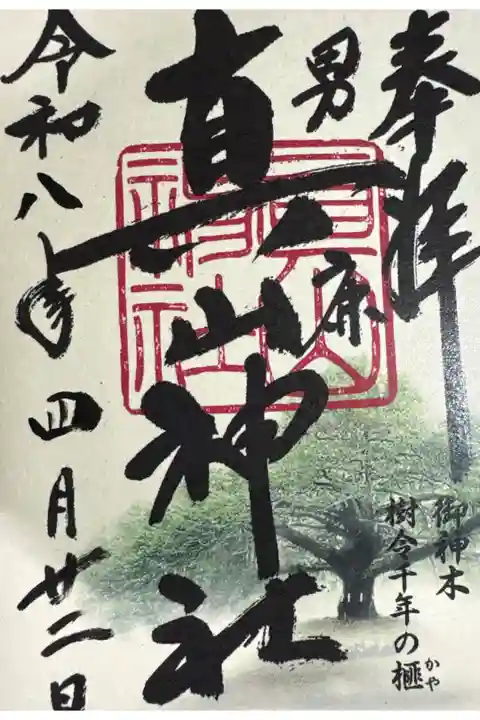 奉拝
男鹿
真山神社
令和八年四月廿二日
真山神社
御神木
樹令千年の榧
かや